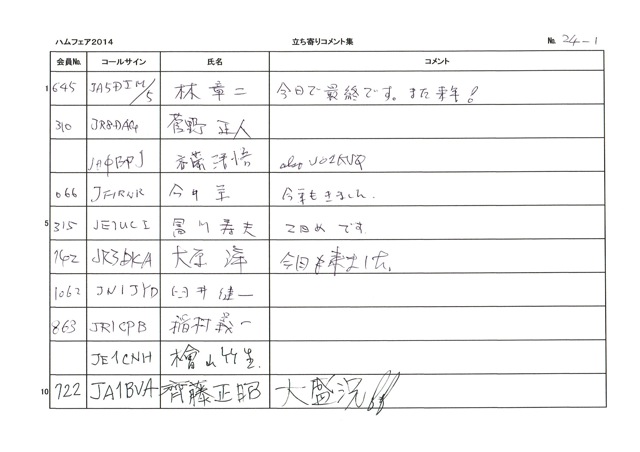 ハムフェア2014 立ち寄りコメント集 № 24-1
会員No. コールサイン 氏名 コメント
1 645 JA5DJM/5 林 章二 今日で最終です。また来年!
310 菅野 正人
also
066 今年もきました。
5 315 JE1UCI 冨川 寿夫 2日め です。
742 JR3DKA 大原 今日も来ました。
1062 JN1JYD 臼井 健一
863 JR1CPB 稲村 義一
JE1CNH 檜山竹生
10 722 JA1BVA 齊藤正昭 大盛況